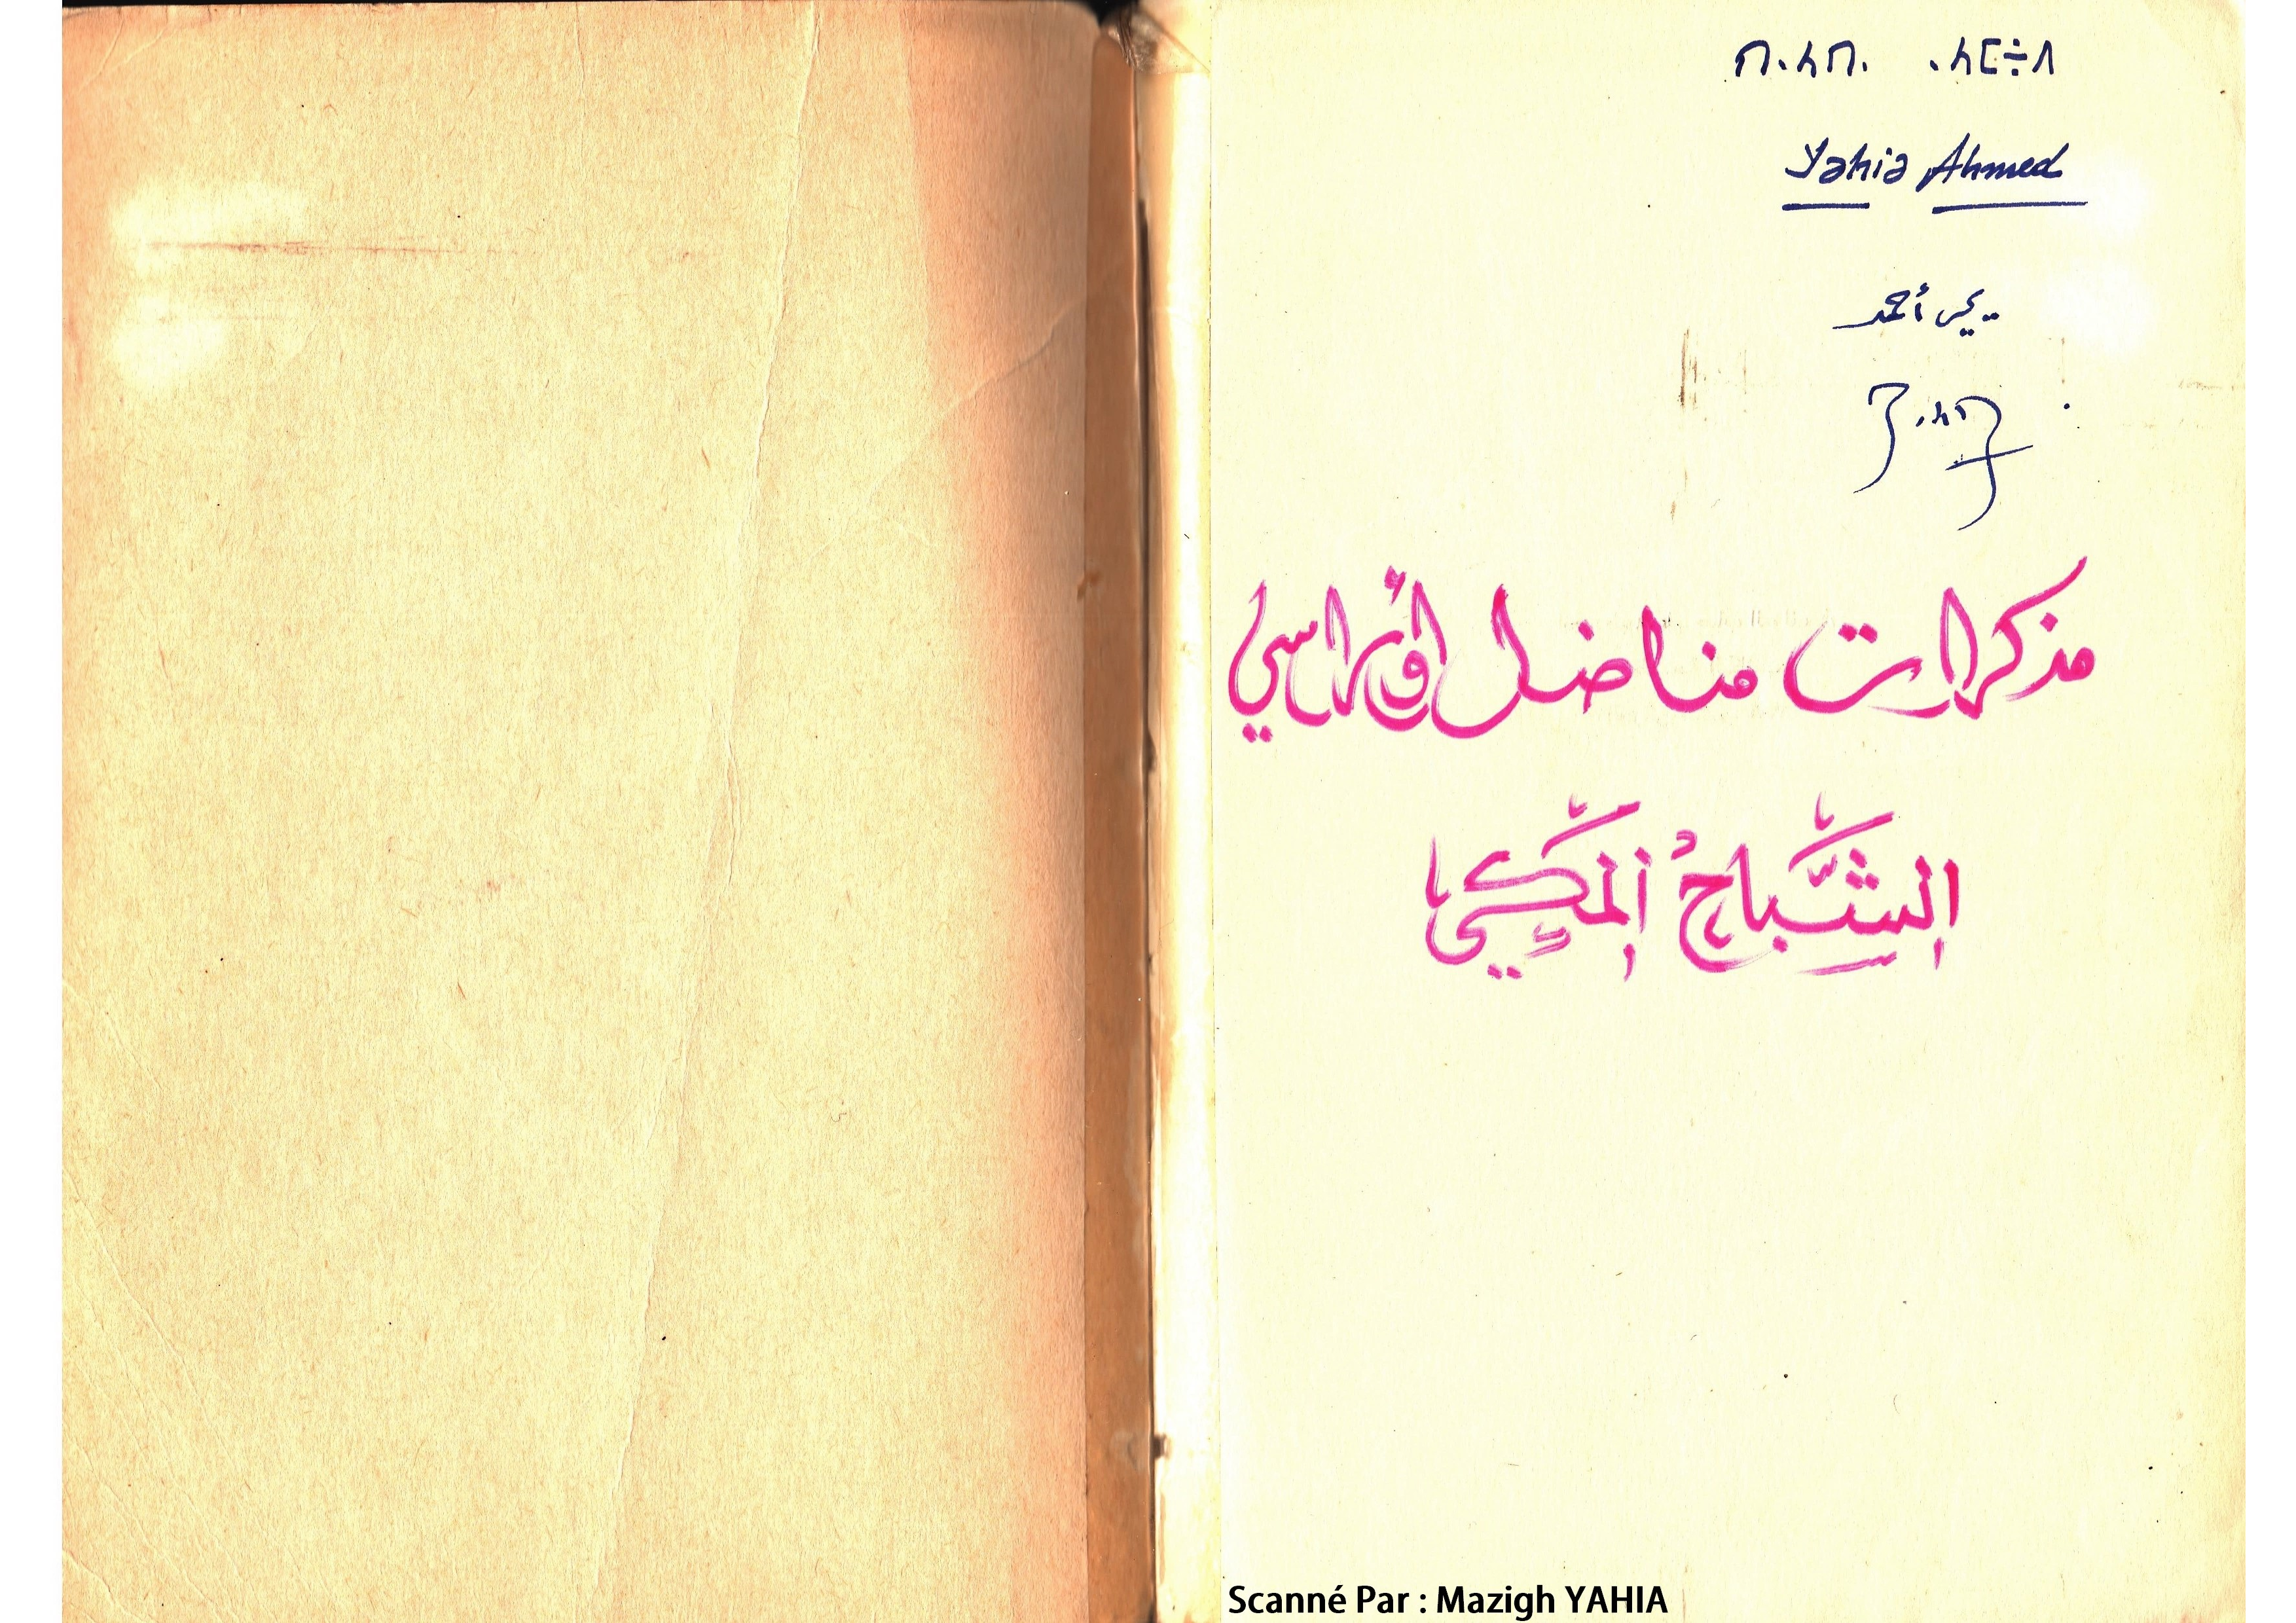 Yahia Ahmed
يحي أحمد
مذكرات مناضل أوراسي
الشَّباحُ المَكِّي
Scanné Par : Mazigh YAHIA